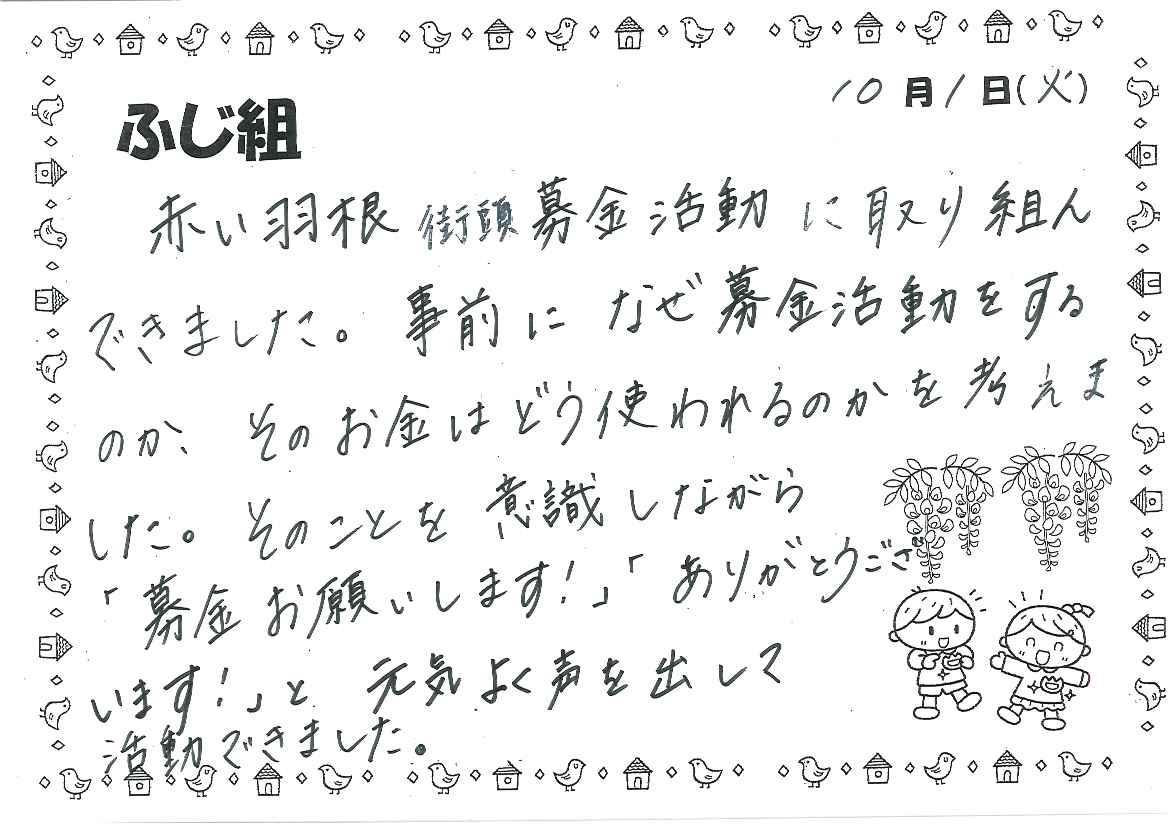 10月1日(火)
ふじ組
赤い羽根街頭募金活動に取り組ん
できました。事前になぜ募金活動をする
のか、そのお金はどう使われるのかを考えま
した。そのことを意識しながら
「募金お願いします!」「ありがとうござ
います!」と元気よく声を出して
活動できました。